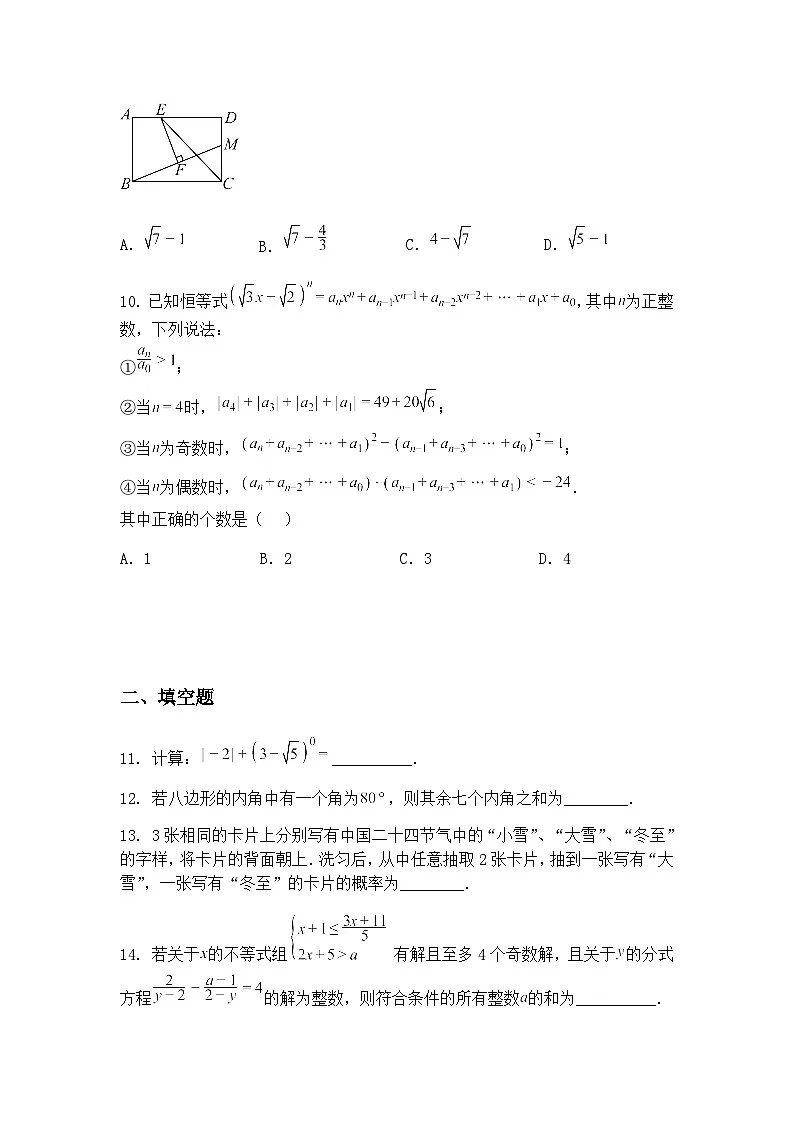 A E D
M
F
B C
A. √7－1 B. √7－4/3 C. 4－√7 D. √5－1
10. 已知恒等式(√3x－√2)^n=a_nx^n+a_{n-1}x^{n-1}+a_{n-2}x^{n-2}+…+a_1x+a_0,其中n为正整
数, 下列说法:
①a_n/a_0>1;
②当n=4时, |a_4|+|a_3|+|a_2|+|a_1|=49+20√6;
③当n为奇数时, (a_n+a_{n-2}+…+a_1)^2－(a_{n-1}+a_{n-3}+…+a_0)^2=1;
④当n为偶数时, (a_n+a_{n-2}+…+a_0)·(a_{n-1}+a_{n-3}+…+a_1)<－24.
其中正确的个数是( )
A. 1 B. 2 C. 3 D. 4
二、填空题
11. 计算: |－2|+(3－√5)^0=__________.
12. 若八边形的内角中有一个角为80°, 则其余七个内角之和为________.
13. 3张相同的卡片上分别写有中国二十四节气中的“小雪”、“大雪”、“冬至”
的字样, 将卡片的背面朝上. 洗匀后, 从中任意抽取2张卡片, 抽到一张写有“大
雪”, 一张写有“冬至”的卡片的概率为________.
14. 若关于x的不等式组{x+1≤(3x+11)/5 2x+5>a 有解且至多4个奇数解, 且关于y的分式
方程2/(y－2)－(a－1)/(2－y)=4的解为整数, 则符合条件的所有整数a的和为__________.